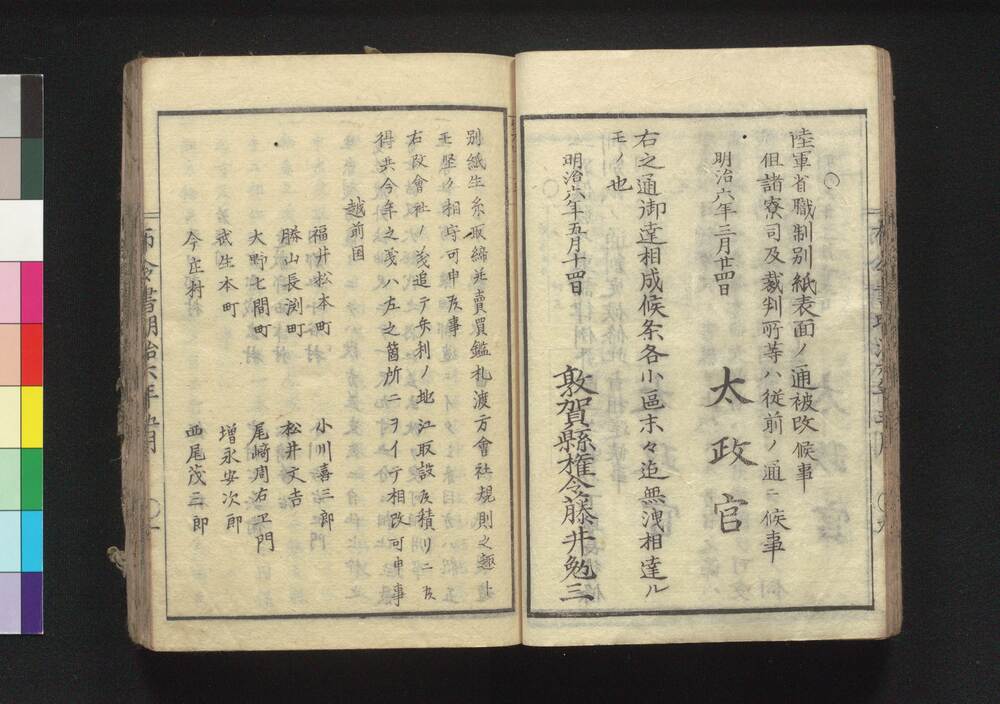 ○
陸軍省職制別紙表面ノ通被改候事
但諸寮司及裁判所等ハ従前ノ通ニ候事
明治六年三月廿四日
太政官
右之通御達相成候条各小區末々迠無洩相達ル
モノ也
明治六年五月十四日
敦賀縣権令藤井勉三
別紙生糸取締并賣買鑑札渡方會社規則之趣
堅ク相守可申候事
右改會社ノ義追テ弁利ノ地江取設候積リニ候
得共今年之義ハ左之箇所ニヲイテ相改可申事
越前国
福井松本町 小川喜三郎
勝山長渕町 松井文吉
大野七間町 尾﨑周右卫門
武生本町 増永安次郎
今庄村 西尾茂三郎
布令書明治六年五月